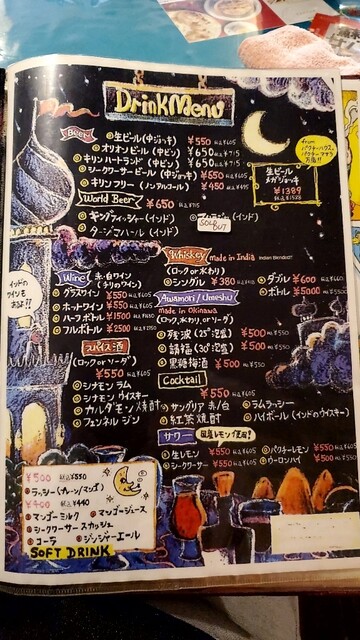 Drink Menu
Beer
生ビール(中ジョッキ) ¥550 税込¥605
オリオンビール(中ビン) ¥650 税込¥715
キリンハートランド(中ビン) ¥650 税込¥715
シークワーサービール(中ジョッキ) ¥550 税込¥605
キリンフリー(ノンアルコール) ¥450 税込¥495
from
生ビール
メガジョッキ
¥1389
税込¥1528
World Beer ¥650 税込¥715
キングフィッシャー(インド)
(インド)
SOLD OUT
タージマハール(インド)
インドの
ワインも
あるよ!!
Wine 赤・白ワイン
(チリのワイン)
グラスワイン ¥550 税込¥605
ホットワイン ¥550 税込¥605
ハーフボトル ¥1500
フルボトル ¥2500
Whiskey made in India Indian Blended
(ロック or 水わり)
シングル ¥380
ダブル ¥600
ボトル ¥5000
Awamori / Umeshu
made in Okinawa
(ロック、水わり or ソーダ)
残波(25°泡盛) ¥500 税込¥550
請福(30°泡盛) ¥500 税込¥550
黒糖梅酒 ¥500 税込¥550
スパイス酒
(ロック or ソーダ)
¥550 税込¥605
シナモン ラム
シナモン ウイスキー
カルダモン焼酎
フェンネル ジン
Cocktail
¥550 税込¥605
サングリア 赤/白
ラムラッシー
紅茶焼酎
ハイボール(インドのウイスキー)
サワー 国産レモン使用!
生レモン ¥550 税込¥605
パクチーレモン ¥550 税込¥605
シークワーサー ¥550 税込¥605
ウーロンハイ ¥500 税込¥550
¥500 税込¥550
ラッシー(プレーン/マンゴ)
¥400 税込¥440
マンゴーミルク
マンゴージュース
シークワーサースカッシュ
コーラ
ジンジャーエール
SOFT DRINK